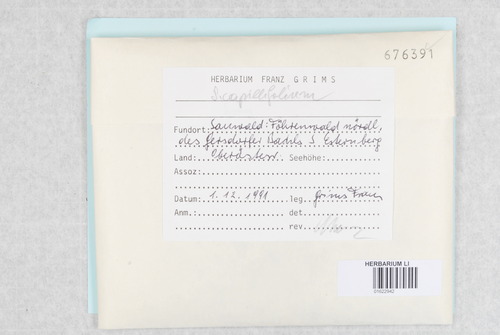 676391
HERBARIUM FRANZ GRIMS
S. capillifolium
Fundort: Sauwald: Föhrenwald nördl.
des Gersdorfer S. Esternberg
Land: Oberösterr. Seehöhe:
Assoz:
Datum: 1. 12. 1991 leg. Grims Franz
Anm.: det.
rev.
HERBARIUM LI